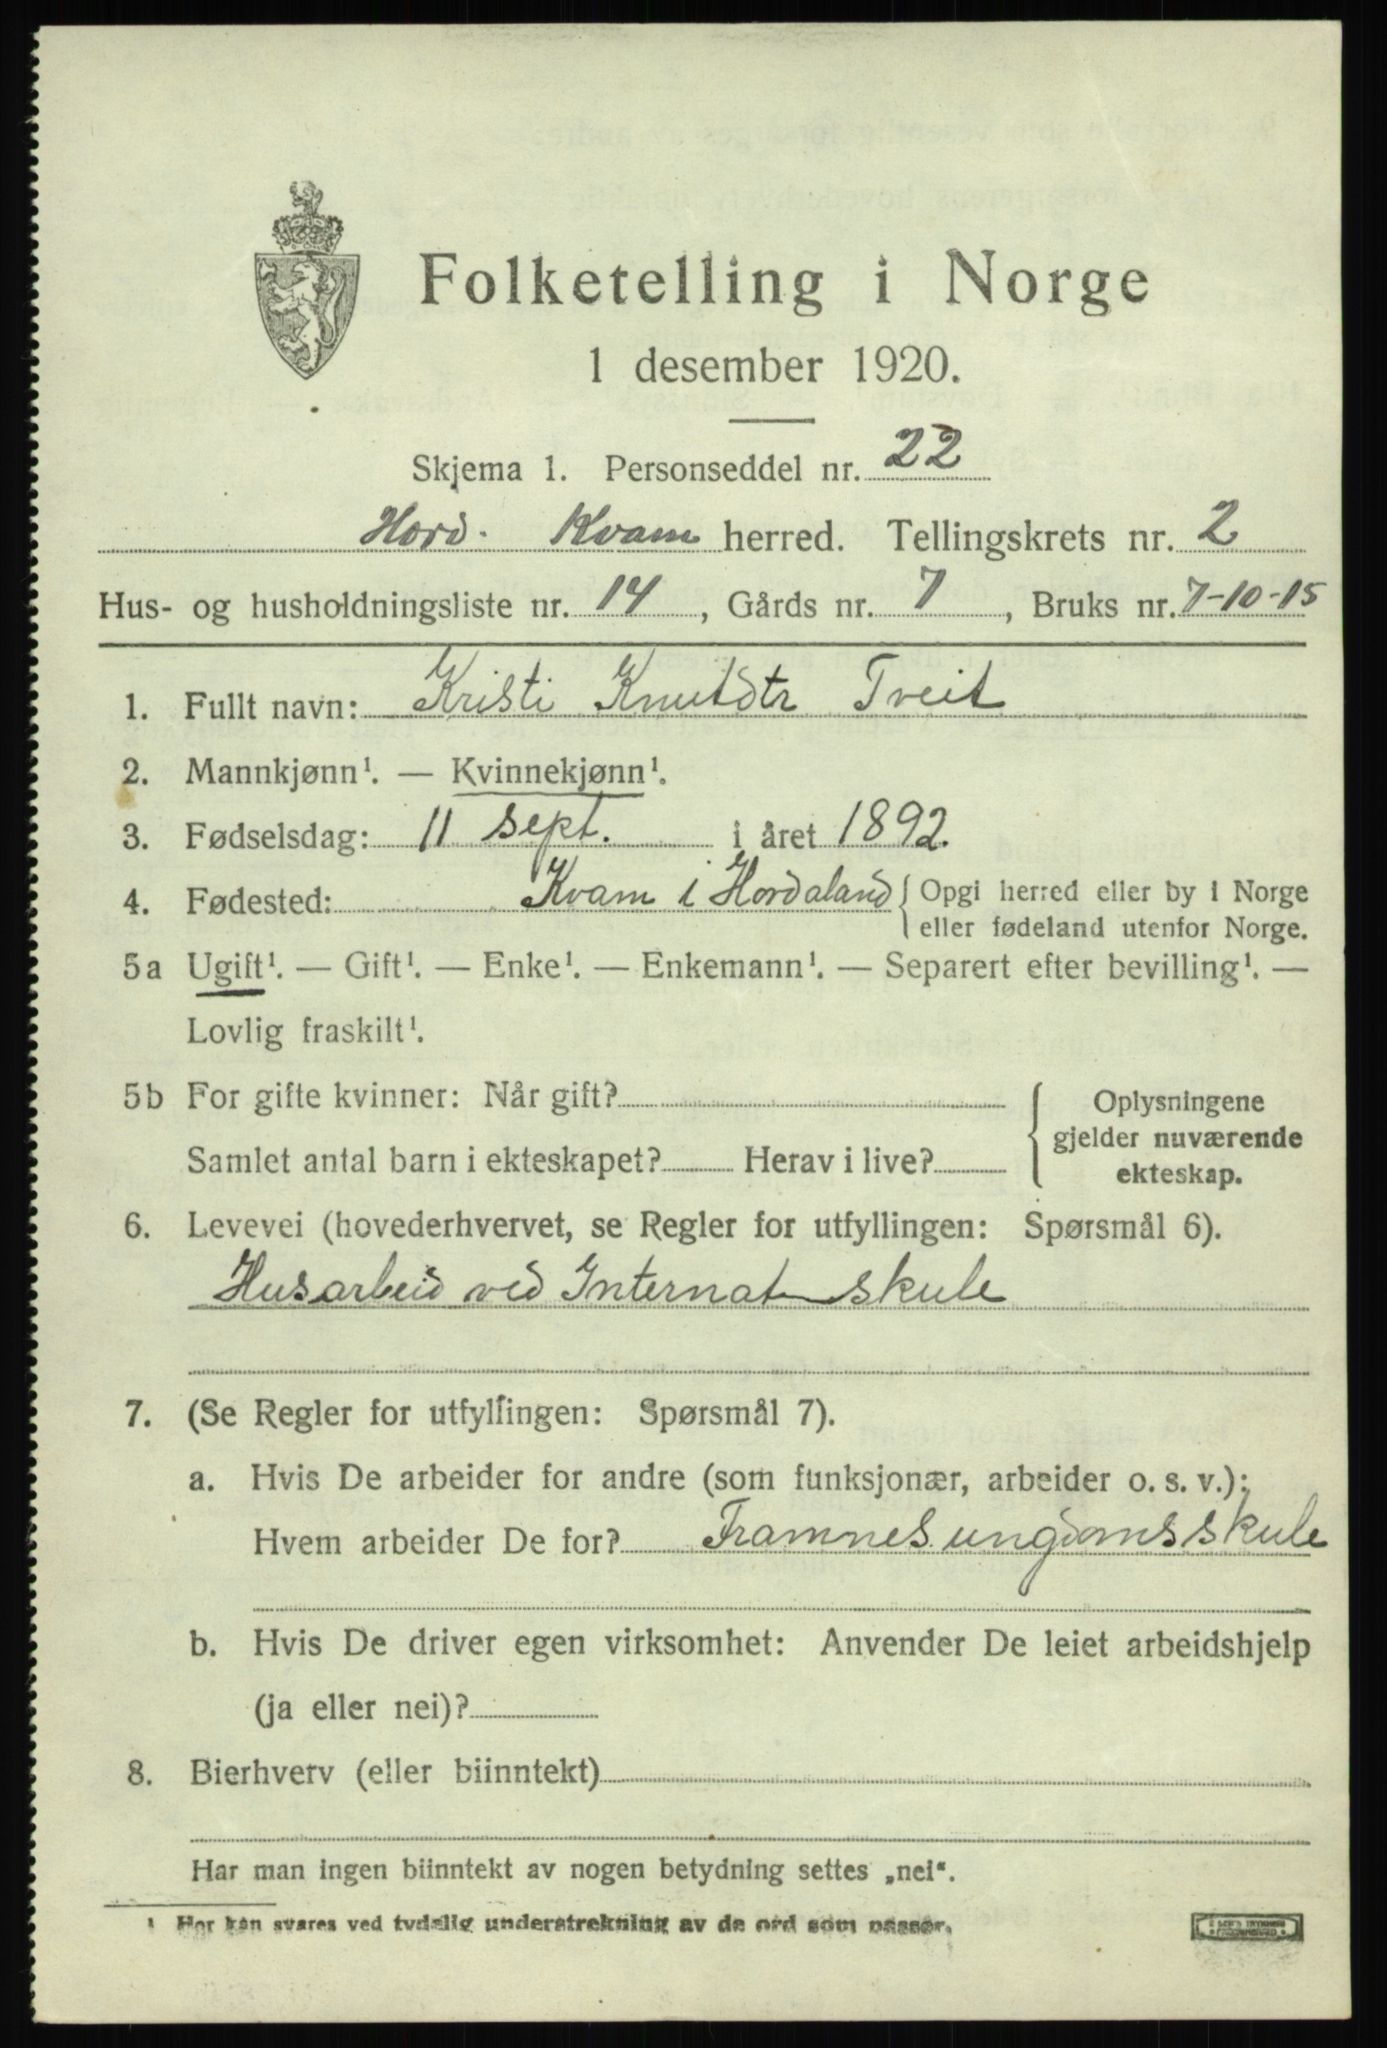 Folketelling i Norge
1 desember 1920.
Skjema 1. Personseddel nr. 22
Hord. Kvam herred. Tellingskrets nr. 2
Hus- og husholdningsliste nr. 14, Gårds nr. 7, Bruks nr. 7-10-15
1. Fullt navn: Kristi Knutdtr Tveit
2. Mannkjønn¹. — Kvinnekjønn¹.
3. Fødselsdag: 11 sept. i året 1892.
4. Fødested: Kvam i Hordaland { Opgi herred eller by i Norge
eller fødeland utenfor Norge.
5a Ugift¹. — Gift¹. — Enke¹. — Enkemann¹. — Separert efter bevilling¹. —
Lovlig fraskilt¹.
5b For gifte kvinner: Når gift?
Samlet antal barn i ekteskapet? Herav i live?
{ Oplysningene
gjelder nuværende
ekteskap.
6. Levevei (hovederhvervet, se Regler for utfyllingen: Spørsmål 6).
Husarbeid ved Internatskule
7. (Se Regler for utfyllingen: Spørsmål 7).
a. Hvis De arbeider for andre (som funksjonær, arbeider o. s. v.):
Hvem arbeider De for? Framnes ungdomsskule
b. Hvis De driver egen virksomhet: Anvender De leiet arbeidshjelp
(ja eller nei)?
8. Bierhverv (eller biinntekt)
Har man ingen biinntekt av nogen betydning settes „nei“.
¹ Her kan svares ved tydelig understrekning av de ord som passer.